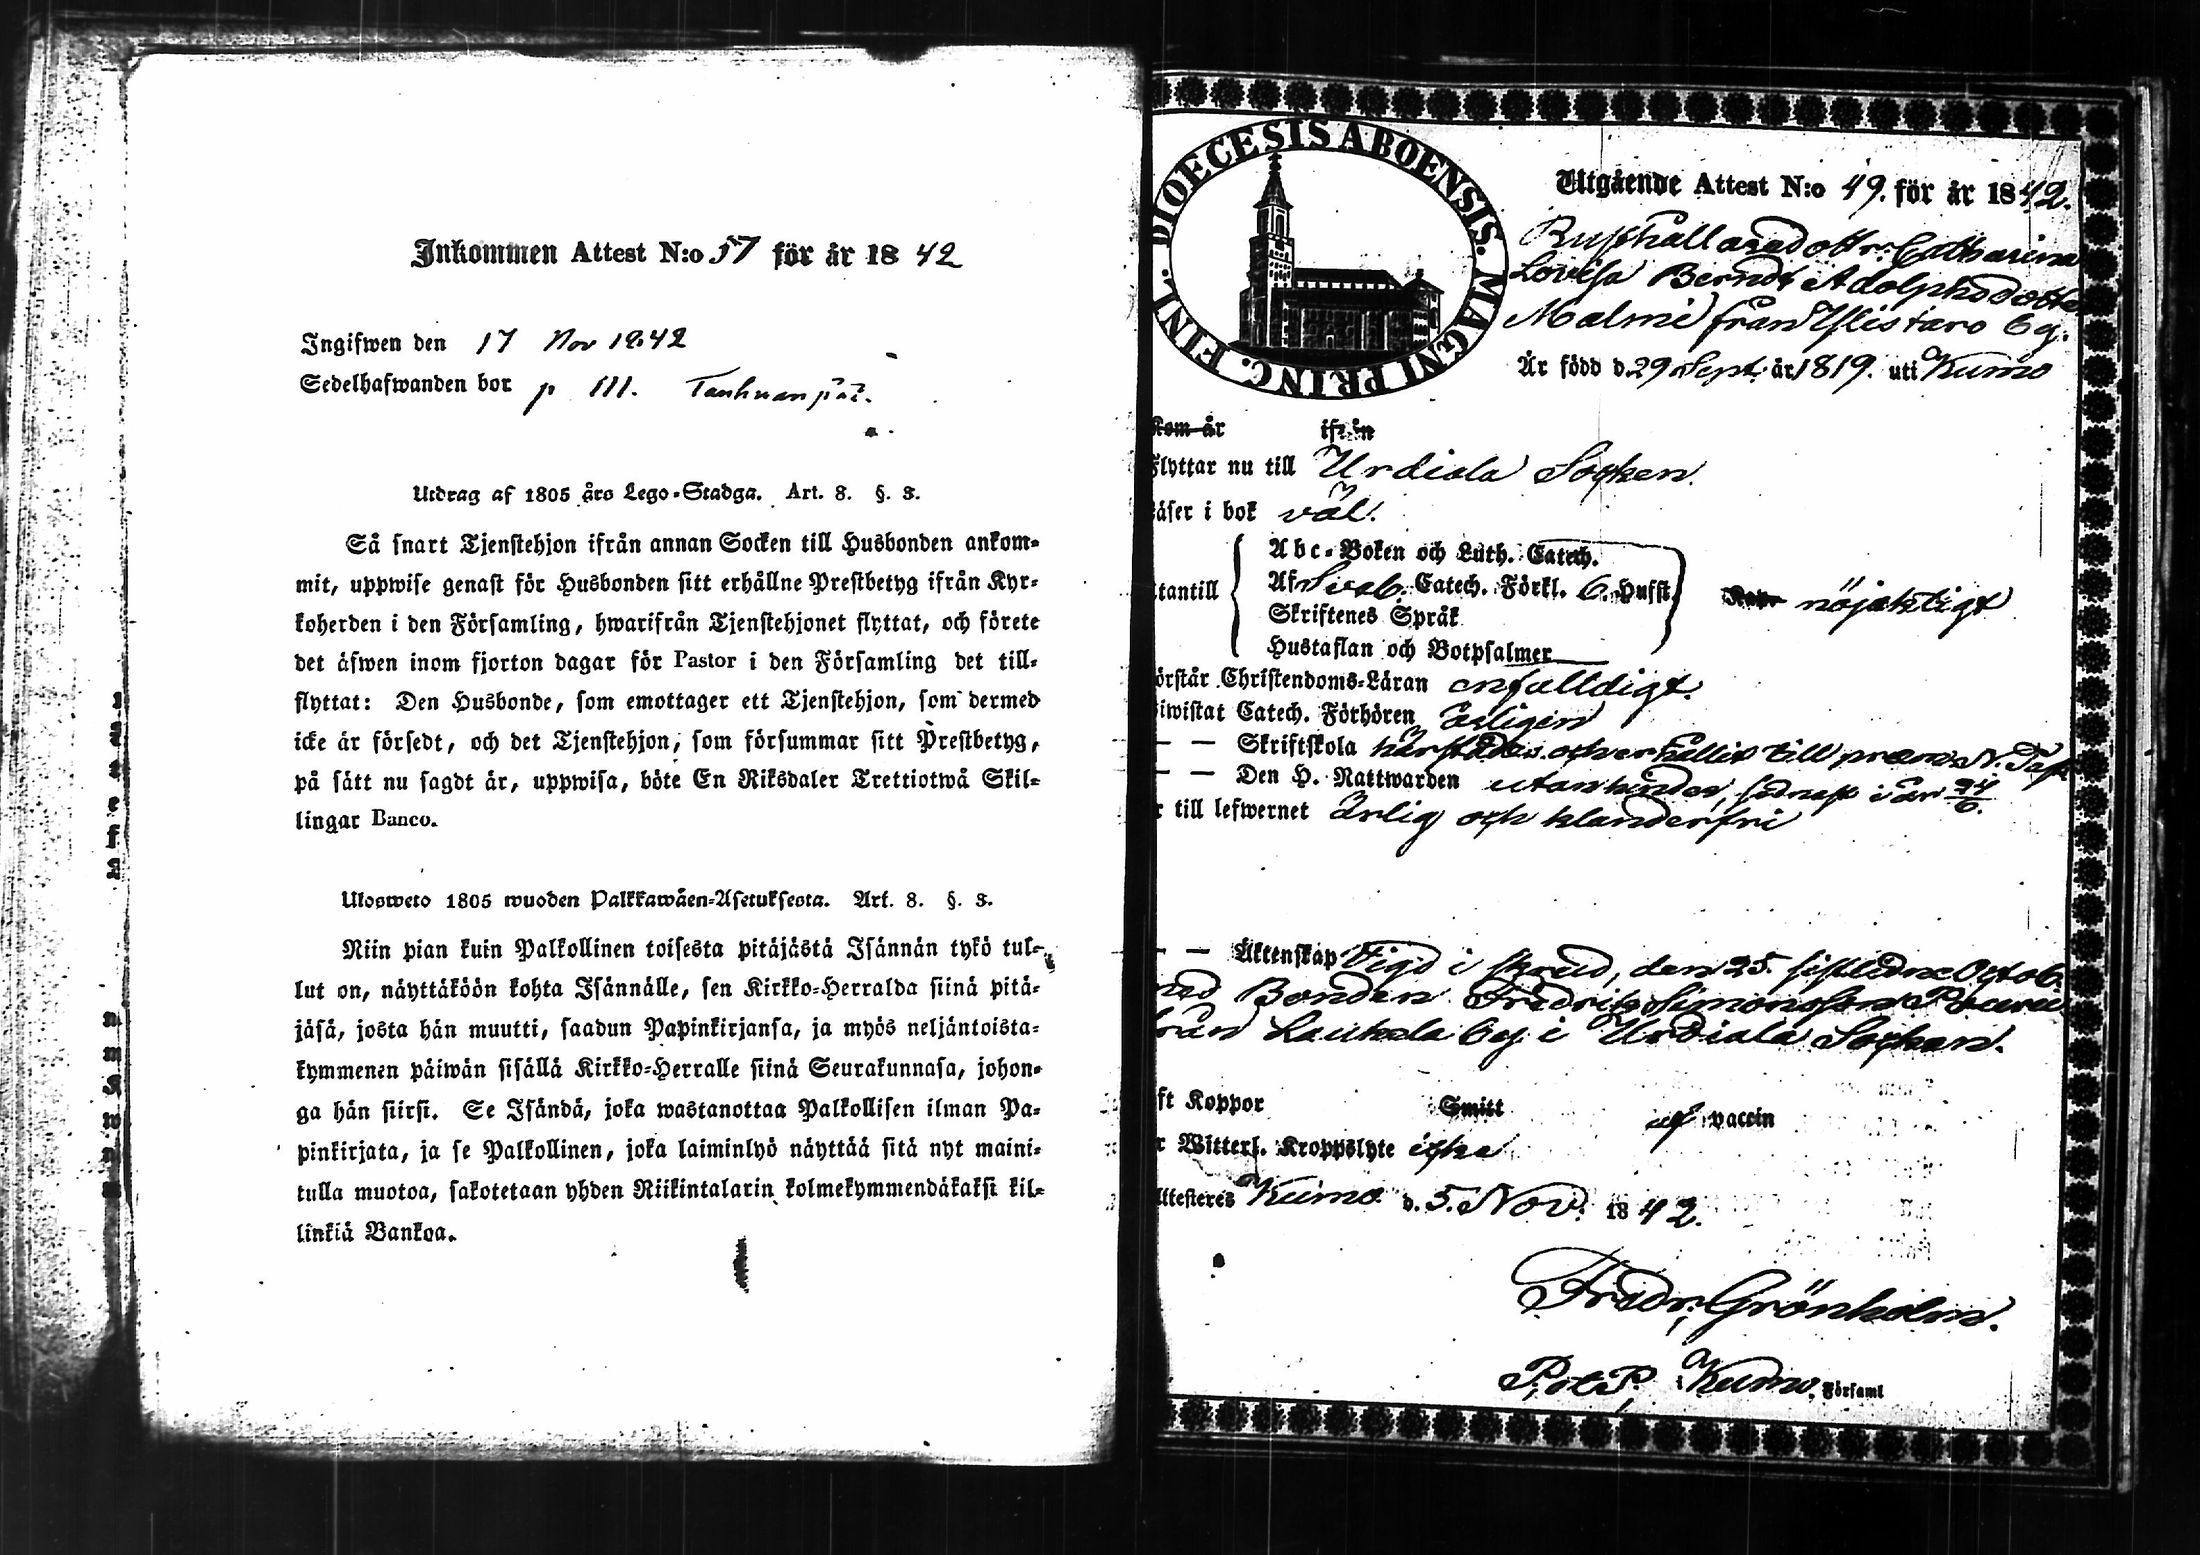 Inkommen Attest N:o 57 för år 1842
Ingifwen den 17 Nov 1842
Sedelhafwanden bor p III. Tanhuanpää.
Utdrag af 1805 års Lego-Stadga. Art. 8. §. 3.
Så snart Tjenstehjon ifrån annan Socken till Husbonden ankom-
mit, uppwise genast för Husbonden sitt erhållne Prestbetyg ifrån Kyr-
koherden i den Församling, hwarifrån Tjenstehjonet flyttat, och förete
det äfwen inom fjorton dagar för Pastor i den Församling det till-
flyttat: Den Husbonde, som emottager ett Tjenstehjon, som dermed
icke är försedt, och det Tjenstehjon, som försummar sitt Prestbetyg,
på sätt nu sagdt är, uppwisa, böte En Riksdaler Trettiotwå Skil-
lingar Banco.
Ulosweto 1805 wuoden Palkkawäen-Asetuksesta. Art. 8. §. 3.
Niin pian kuin Palkollinen toisesta pitäjästä Isännän tykö tul-
lut on, näyttäköön kohta Isännälle, sen Kirkko-Herralda siinä pitä-
jäsä, josta hän muutti, saadun Papinkirjansa, ja myös neljäntoista-
kymmenen päiwän sisällä Kirkko-Herralle siinä Seurakunnasa, johon-
ga hän siirsi. Se Isändä, joka wastanottaa Palkollisen ilman Pa-
pinkirjata, ja se Palkollinen, joka laiminlyö näyttää sitä nyt maini-
tulla muotoa, sakotetaan yhden Riikintalarin kolmekymmendäkaksi kil-
linkiä Bankoa.
DIOECESIS ABOENSIS. MAGNI PRINC. FINL.
Utgående Attest N:o 49. för år 1842.
Rusthållaredottr: Catharina
Lovisa Berndt Adolphsdotter
Malmi från Ylistaro by.
Är född d. 29 Sept. år 1819. uti Kumo
Kom år ifrån
Flyttar nu till Urdiala Socken.
Läser i bok väl.
Utantill
Abc-Boken och Luth. Catech.
Af Sveb. Catech. Förkl. 6. Hufst.
Skriftenes Språk
Hustaflan och Botpsalmer
nöjaktigt
Förstår Christendoms-Läran enfalldigt.
Biwistat Catech. Förhören årligen
— — Skriftskola härstädes och erhållit till præm. N. Test.
— — Den H. Nattwarden utan hinder, sednast i år 24/6.
r till lefwernet ärlig och klanderfri
— — Äktenskap Vigd i skrud, den 25. sistledne Octob.
med Bonden Fredrik Simonsson
från Laukela by i Urdiala Socken.
ft Koppor Smitt af vaccin
r Witterl. Kroppslyte icke
Attesteres Kumo d. 5. Nov. 1842.
Fredr. Grönholm.
Kumo. Församl